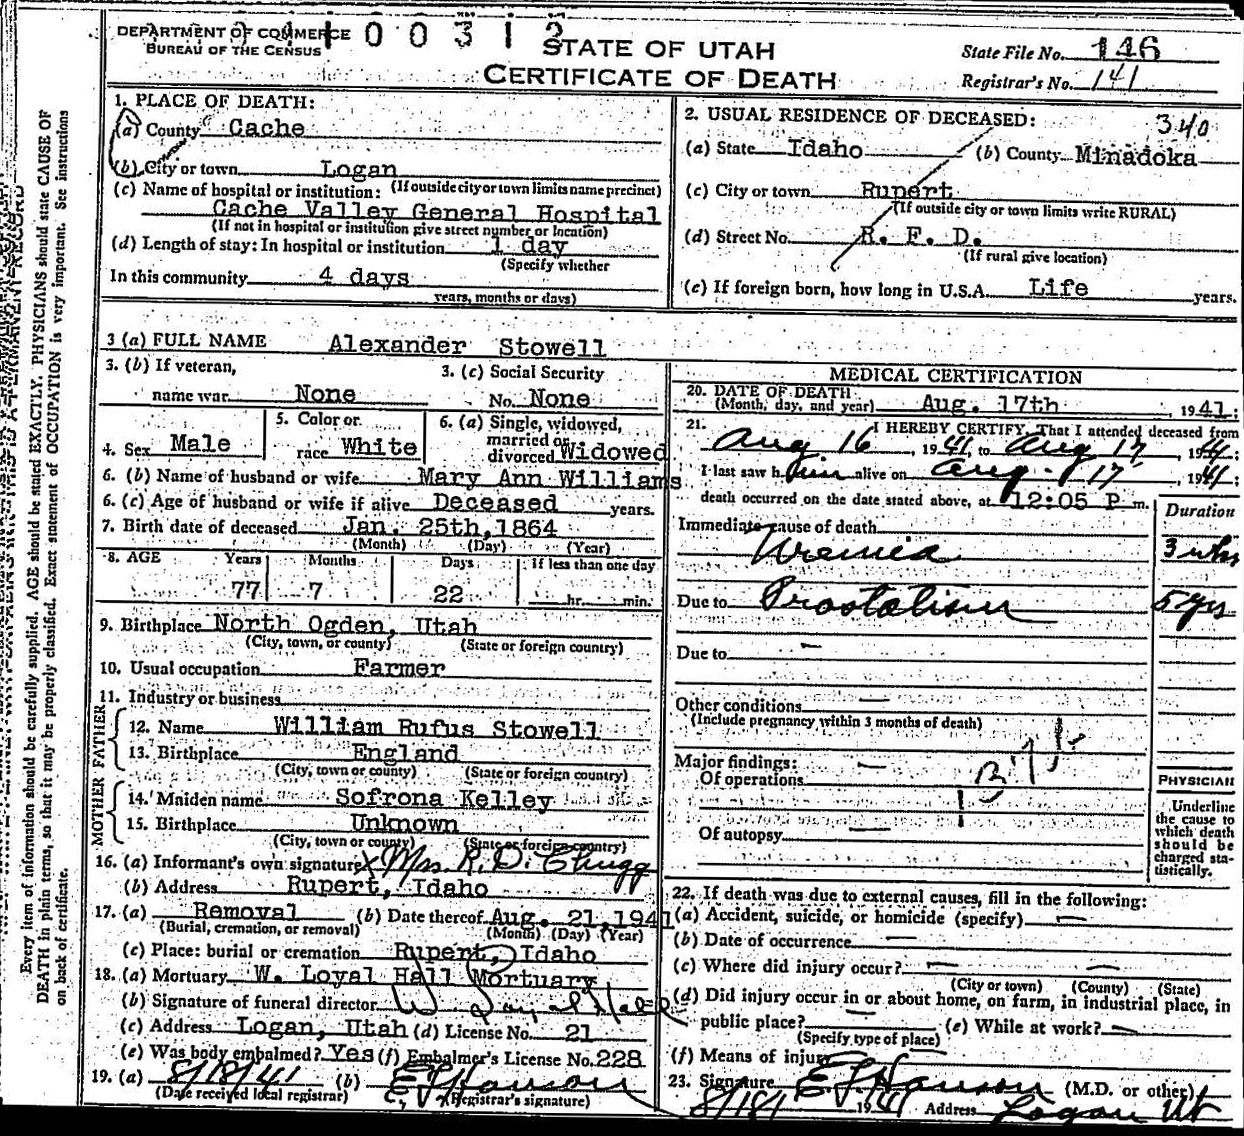 DEPARTMENT OF COMMERCE
BUREAU OF THE CENSUS
1 0 0 3 1 2
STATE OF UTAH
CERTIFICATE OF DEATH
State File No. 146
Registrar's No. 141
1. PLACE OF DEATH:
(a) County Cache
(b) City or town Logan
(If outside city or town limits name precinct)
(c) Name of hospital or institution:
Cache Valley General Hospital
(If not in hospital or institution give street number or location)
(d) Length of stay: In hospital or institution 1 day
(Specify whether
In this community 4 days
years, months or days)
2. USUAL RESIDENCE OF DECEASED:
340
(a) State Idaho (b) County Minadoka
(c) City or town Rupert
(If outside city or town limits write RURAL)
(d) Street No. R. F. D.
(If rural give location)
(e) If foreign born, how long in U.S.A. Life years.
3 (a) FULL NAME Alexander Stowell
3. (b) If veteran,
name war None
3. (c) Social Security
No. None
4. Sex Male
5. Color or
race White
6. (a) Single, widowed,
married or
divorced Widowed
6. (b) Name of husband or wife Mary Ann Williams
6. (c) Age of husband or wife if alive Deceased years.
7. Birth date of deceased Jan. 25th, 1864
(Month) (Day) (Year)
8. AGE Years Months Days If less than one day
77 7 22 hr. min.
9. Birthplace North Ogden, Utah
(City, town, or county) (State or foreign country)
10. Usual occupation Farmer
11. Industry or business
FATHER
12. Name William Rufus Stowell
13. Birthplace England
(City, town or county) (State or foreign country)
MOTHER
14. Maiden name Sofrona Kelley
15. Birthplace Unknown
(City, town or county) (State or foreign country)
16. (a) Informant's own signature X Mrs. R. D. Chugg
(b) Address Rupert, Idaho
17. (a) Removal (b) Date thereof Aug. 21, 1941
(Burial, cremation, or removal) (Month) (Day) (Year)
(c) Place: burial or cremation Rupert, Idaho
18. (a) Mortuary W. Loyal Hall Mortuary
(b) Signature of funeral director W. Loyal Hall
(c) Address Logan, Utah (d) License No. 21
(e) Was body embalmed? Yes (f) Embalmer's License No. 228
19. (a) 8/18/41 (b) E J Hanson
(Date received local registrar) (Registrar's signature)
MEDICAL CERTIFICATION
20. DATE OF DEATH
(Month, day, and year) Aug. 17th, 1941;
21. I HEREBY CERTIFY, That I attended deceased from
Aug 16, 1941, to Aug 17, 1941;
I last saw him alive on Aug. 17, 1941;
death occurred on the date stated above, at 12:05 P m.
Duration
Immediate cause of death
Uremia 3 wks
Due to Prostatism 5 yrs
Due to —
Other conditions —
(Include pregnancy within 3 months of death)
Major findings:
Of operations —
Of autopsy —
PHYSICIAN
Underline
the cause to
which death
should be
charged sta-
tistically.
22. If death was due to external causes, fill in the following:
(a) Accident, suicide, or homicide (specify) —
(b) Date of occurrence —
(c) Where did injury occur? — —
(City or town) (County) (State)
(d) Did injury occur in or about home, on farm, in industrial place, in
public place? — (e) While at work? —
(Specify type of place)
(f) Means of injury
23. Signature E J Hanson (M.D. or other)
8/18/ 1941 Address Logan Ut
Every item of information should be carefully supplied. AGE should be stated EXACTLY. PHYSICIANS should state CAUSE OF
DEATH in plain terms, so that it may be properly classified. Exact statement of OCCUPATION is very important. See instructions
on back of certificate.